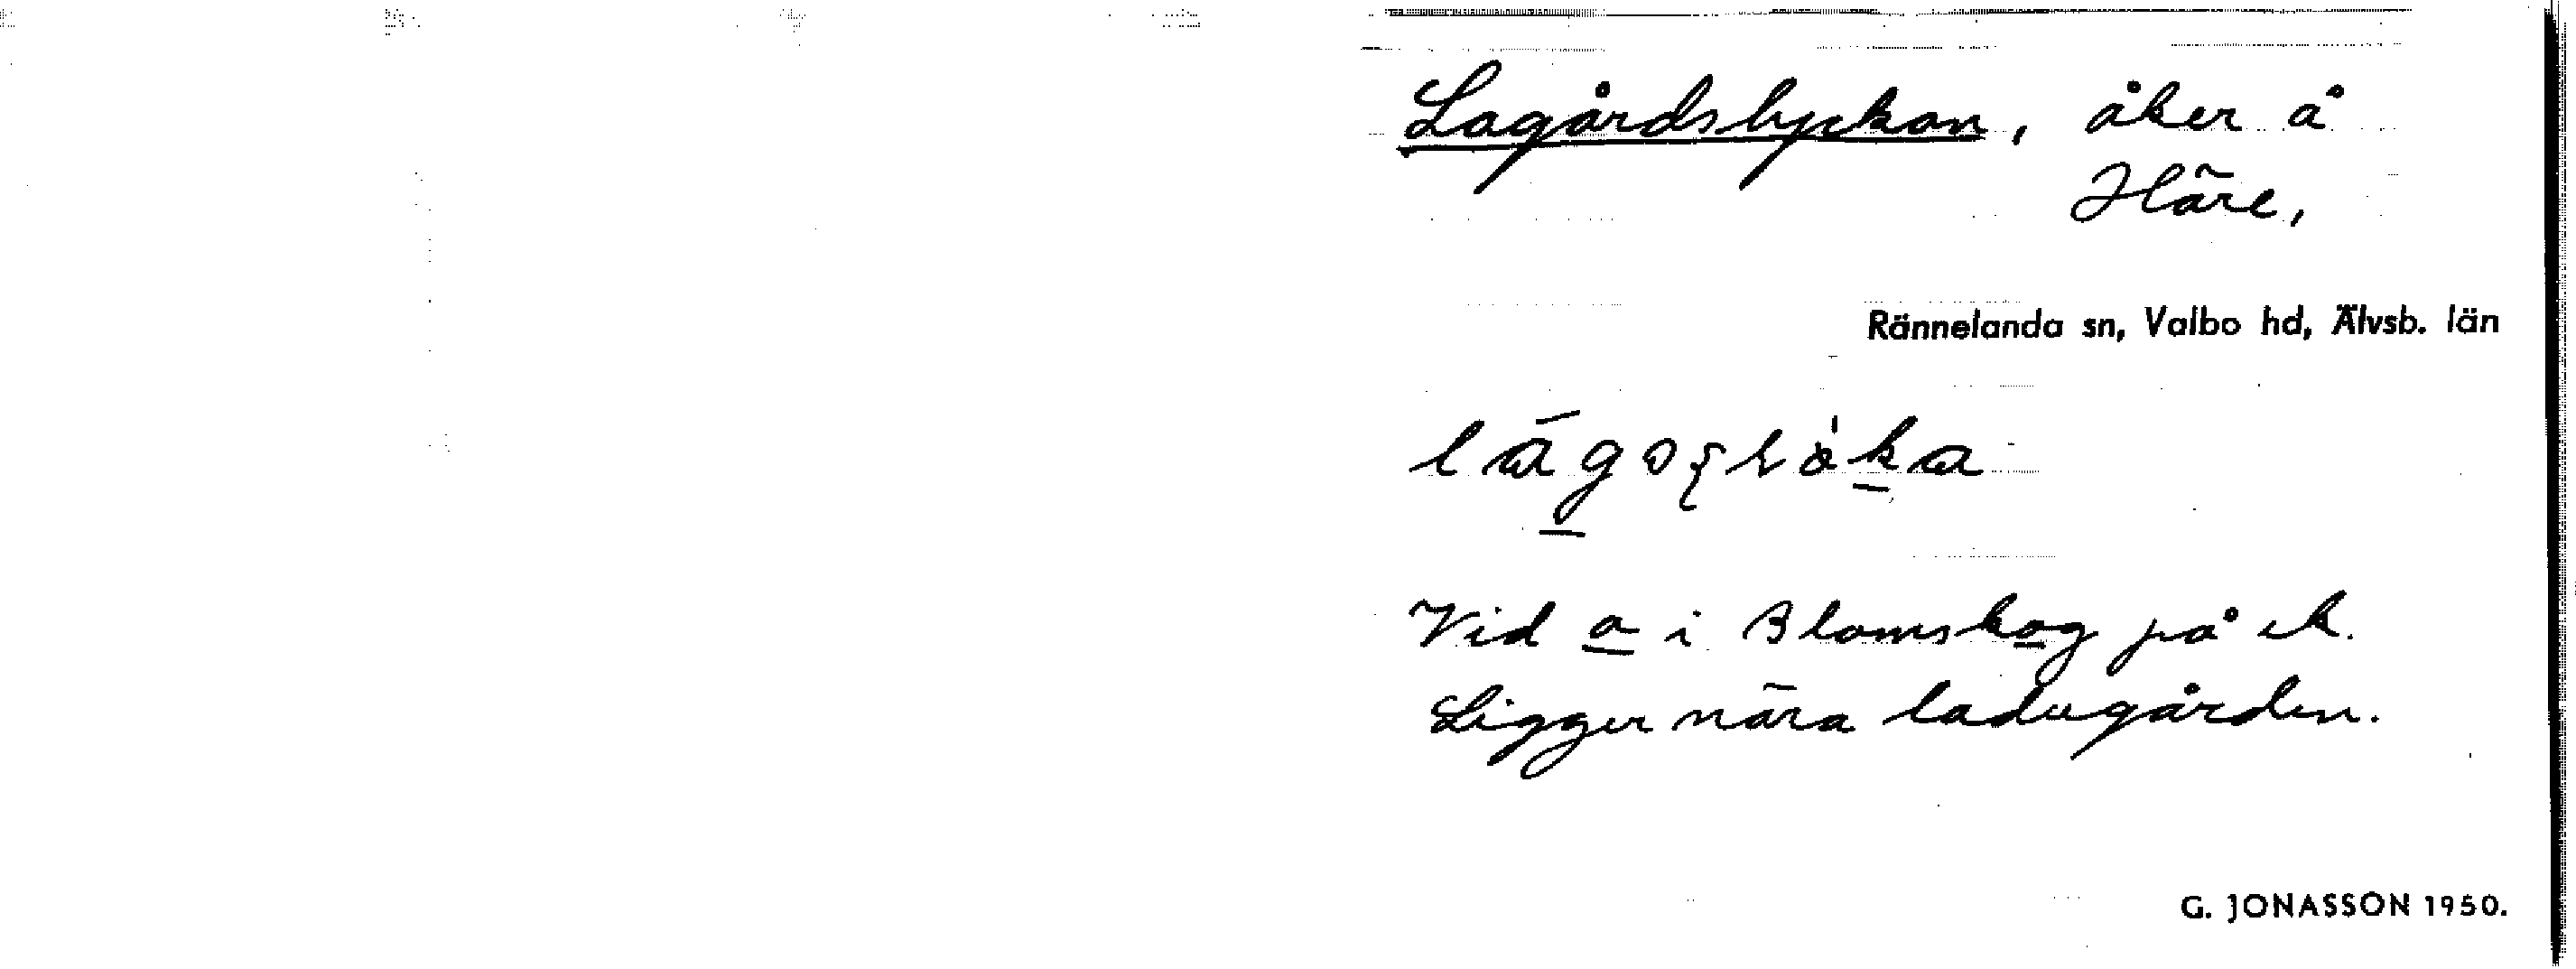 Lagårdslyckan, åker å
Häre,
Rännelanda sn, Valbo hd, Älvsb. län
Vid a i Blomskog på ek.
Ligger nära ladugården.
G. JONASSON 1950.